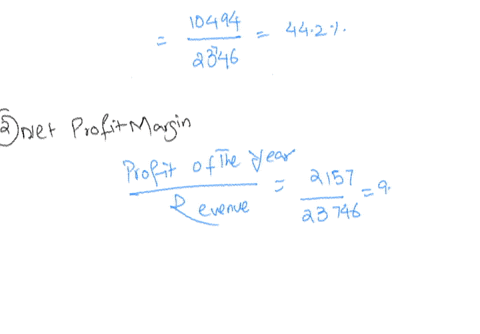 = 10494 / 23746 = 44.2%
② Net Profit Margin
Profit of The Year / Revenue = 2157 / 23746 = 9.